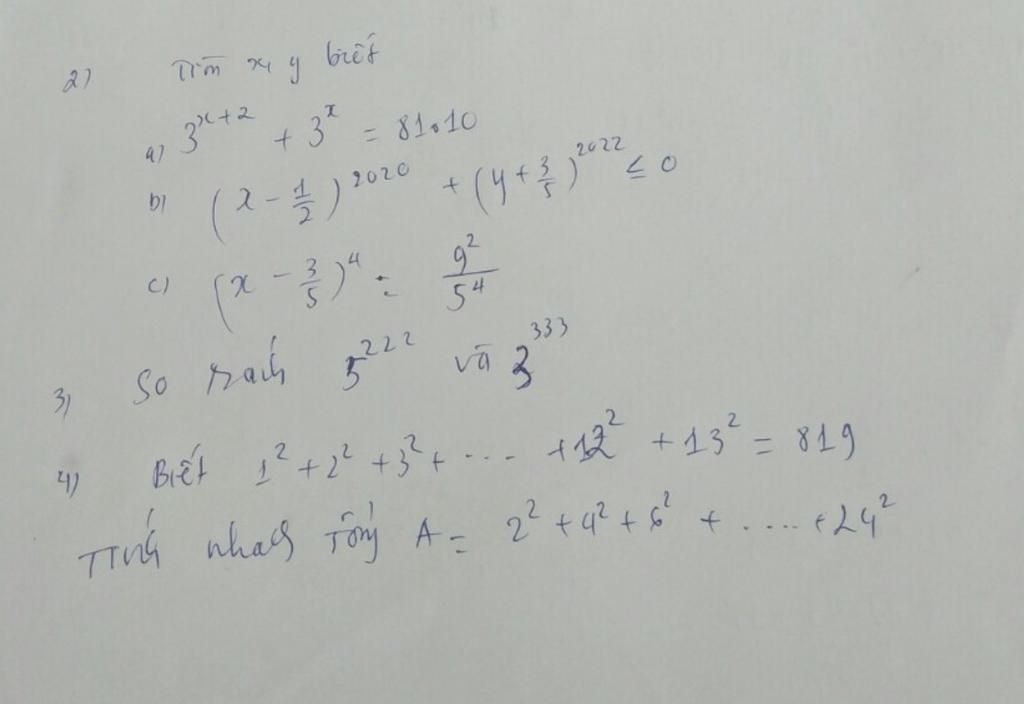 2) Tìm x, y biết
a) 3^{x+2} + 3^x = 81.10
b) (x - 1/2)^{2020} + (y + 3/5)^{2022} ≤ 0
c) (x - 3/5)^4 = 9^2/5^4
3) So sánh 5^{222} và 3^{333}
4) Biết 1^2 + 2^2 + 3^2 + ... + 12^2 + 13^2 = 819
Tính nhanh Tổng A = 2^2 + 4^2 + 6^2 + .... + 24^2